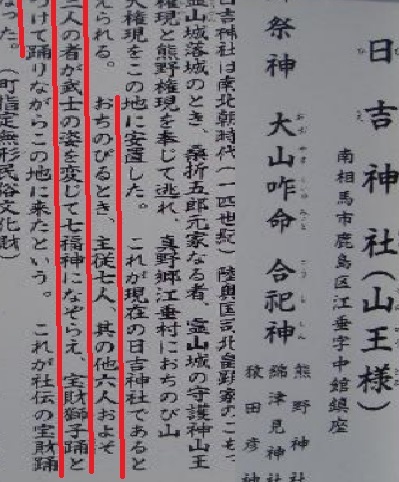 日吉神社(山王様)
南相馬市鹿島区江垂字中館鎮座
祭神 大山咋命 合祀神
熊野神社
綿津見神社
猿田彦神
日吉神社は南北朝時代(一四世紀)陸奥国司北畠顕家のこもっ
霊山城落城のとき、桑折五郎元家なる者、霊山城の守護神山王
権現と熊野権現を奉じて逃れ、真野郷江垂村におちのび山
大権現をこの地に安置した。 これが現在の日吉神社であると
えられる。 おちのびるとき、主従七人、其の他六人およそ
三人の者が武士の姿を変じて七福神になぞらえ、宝財獅子踊と
つけて踊りながらこの地に来たという。 これが社伝の宝財踊
なった。(町指定無形民俗文化財)